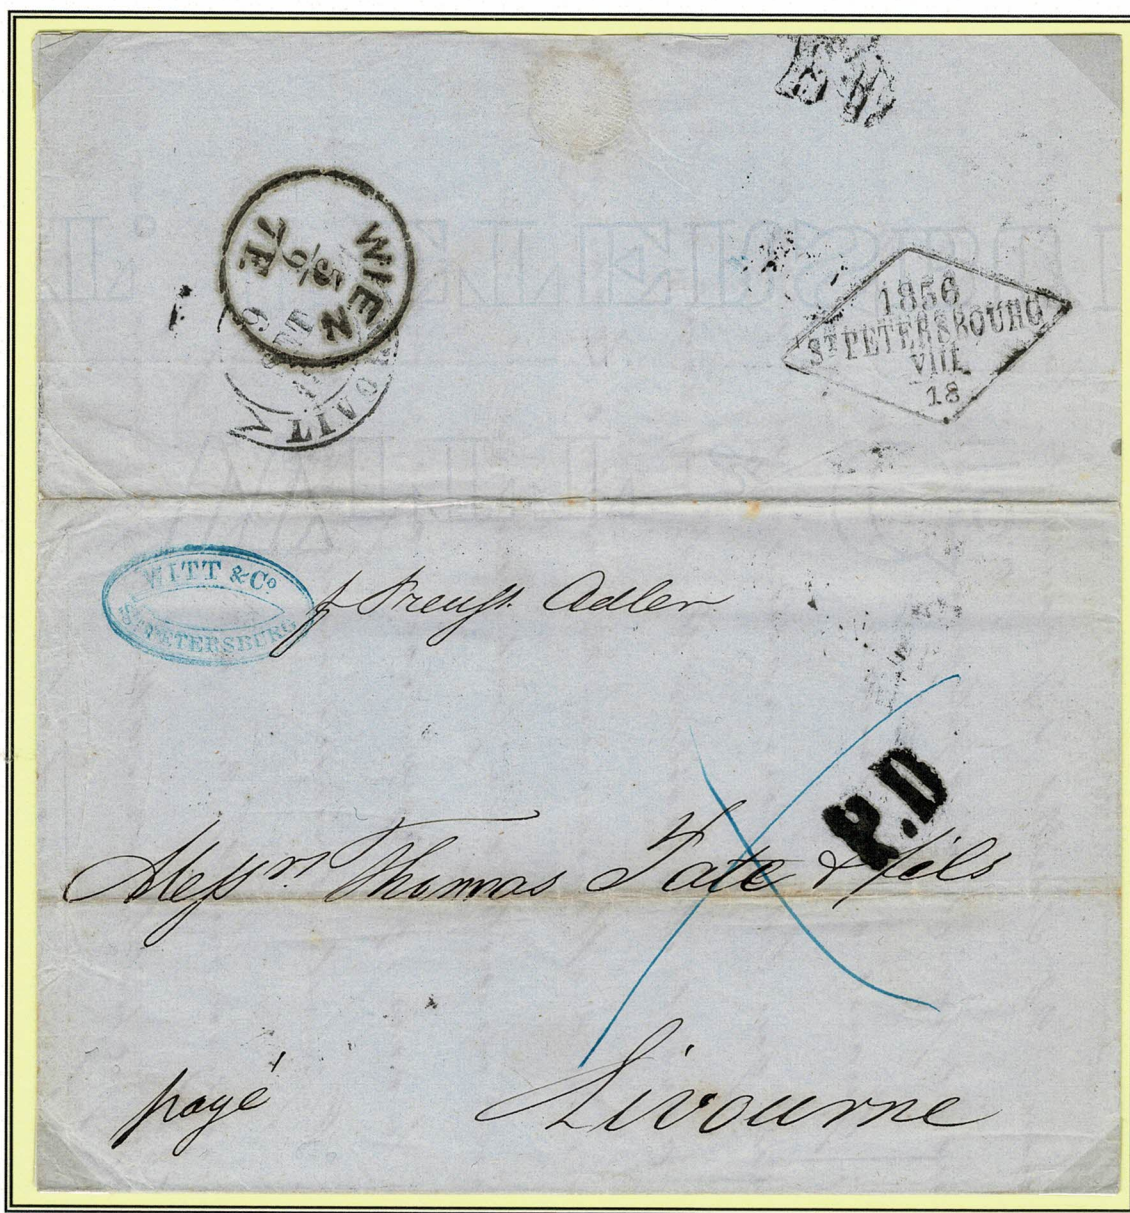 WIEN
5/9
7E
1856
ST PETERSBOURG
VIII
18
WITT & Co
ST PETERSBURG
p Preuss. Adler
P.D
Messrs Thomas Pate & fils
payé
Livourne